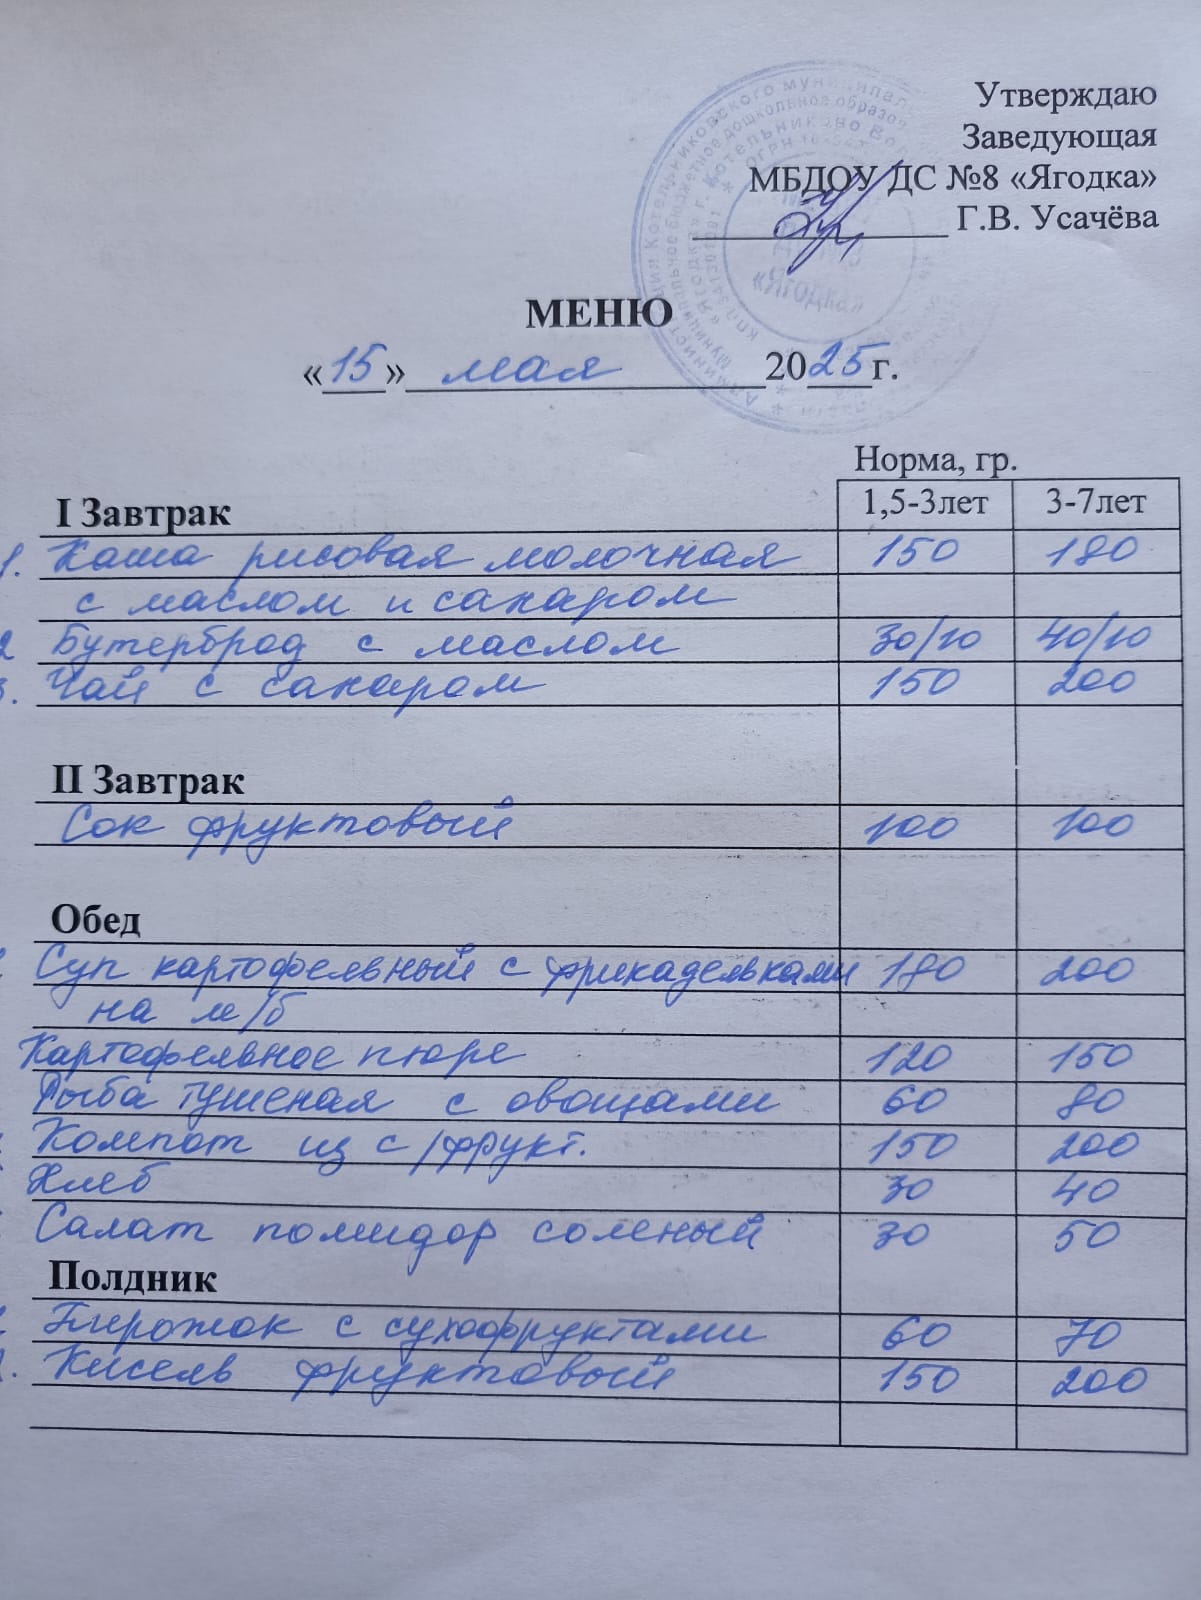 Утверждаю
Заведующая
МБДОУ ДС №8 «Ягодка»
Г.В. Усачёва
«Ягодка»
МЕНЮ
«15» мая 2025г.
Норма, гр.
I Завтрак 1,5-3лет 3-7лет
1. Каша рисовая молочная 150 180
с маслом и сахаром
2 Бутерброд с маслом 30/10 40/10
3. Чай с сахаром 150 200
II Завтрак
Сок фруктовый 100 100
Обед
Суп картофельный с фрикадельками 180 200
на м/б
Картофельное пюре 120 150
Рыба тушеная с овощами 60 80
Компот из с/фрукт. 150 200
Хлеб 30 40
Салат помидор соленый 30 50
Полдник
Пирожок с сухофруктами 60 70
Кисель фруктовый 150 200